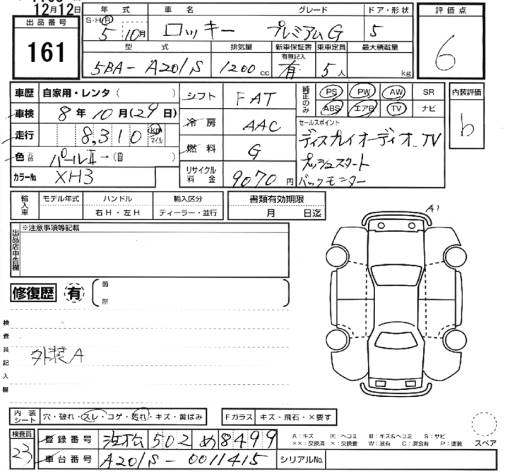 12月12日
出品番号
161
年式 車名 グレード ドア・形状
5 10月 ロッキー プレミアムG 5
型式 排気量 新車保証書 有無記入 乗車定員 最大積載量
5BA-A201S 1200cc 有 5人 kg
評価点
6
車歴 自家用・レンタ( )
車検 8年10月(29日)
走行 8,310 km マイル
色 パールⅡ→( )
カラーNo XH3
シフト FAT
冷房 AAC
燃料 G
リサイクル料金 9070円
純正のみ PS PW AW SR
ABS エアB TV ナビ
セールスポイント
ディスプレイオーディオ TV
プッシュスタート
バックモニター
内装評価
b
輸入車 モデル年式 ハンドル 輸入区分 書類有効期限
年 右H・左H ディーラー・並行 月 日迄
出品店申告欄
※注意事項等記載
修復歴 有
A1
検査員記入欄
外装A
内装シート 穴・破れ・スレ・コゲ・汚れ・キズ・黄ばみ Fガラス キズ・飛石・×要す
検査員 23
登録番号 502 め 8499
車台番号 A201S-0011415 シリアルNo.
A:キズ
スペア